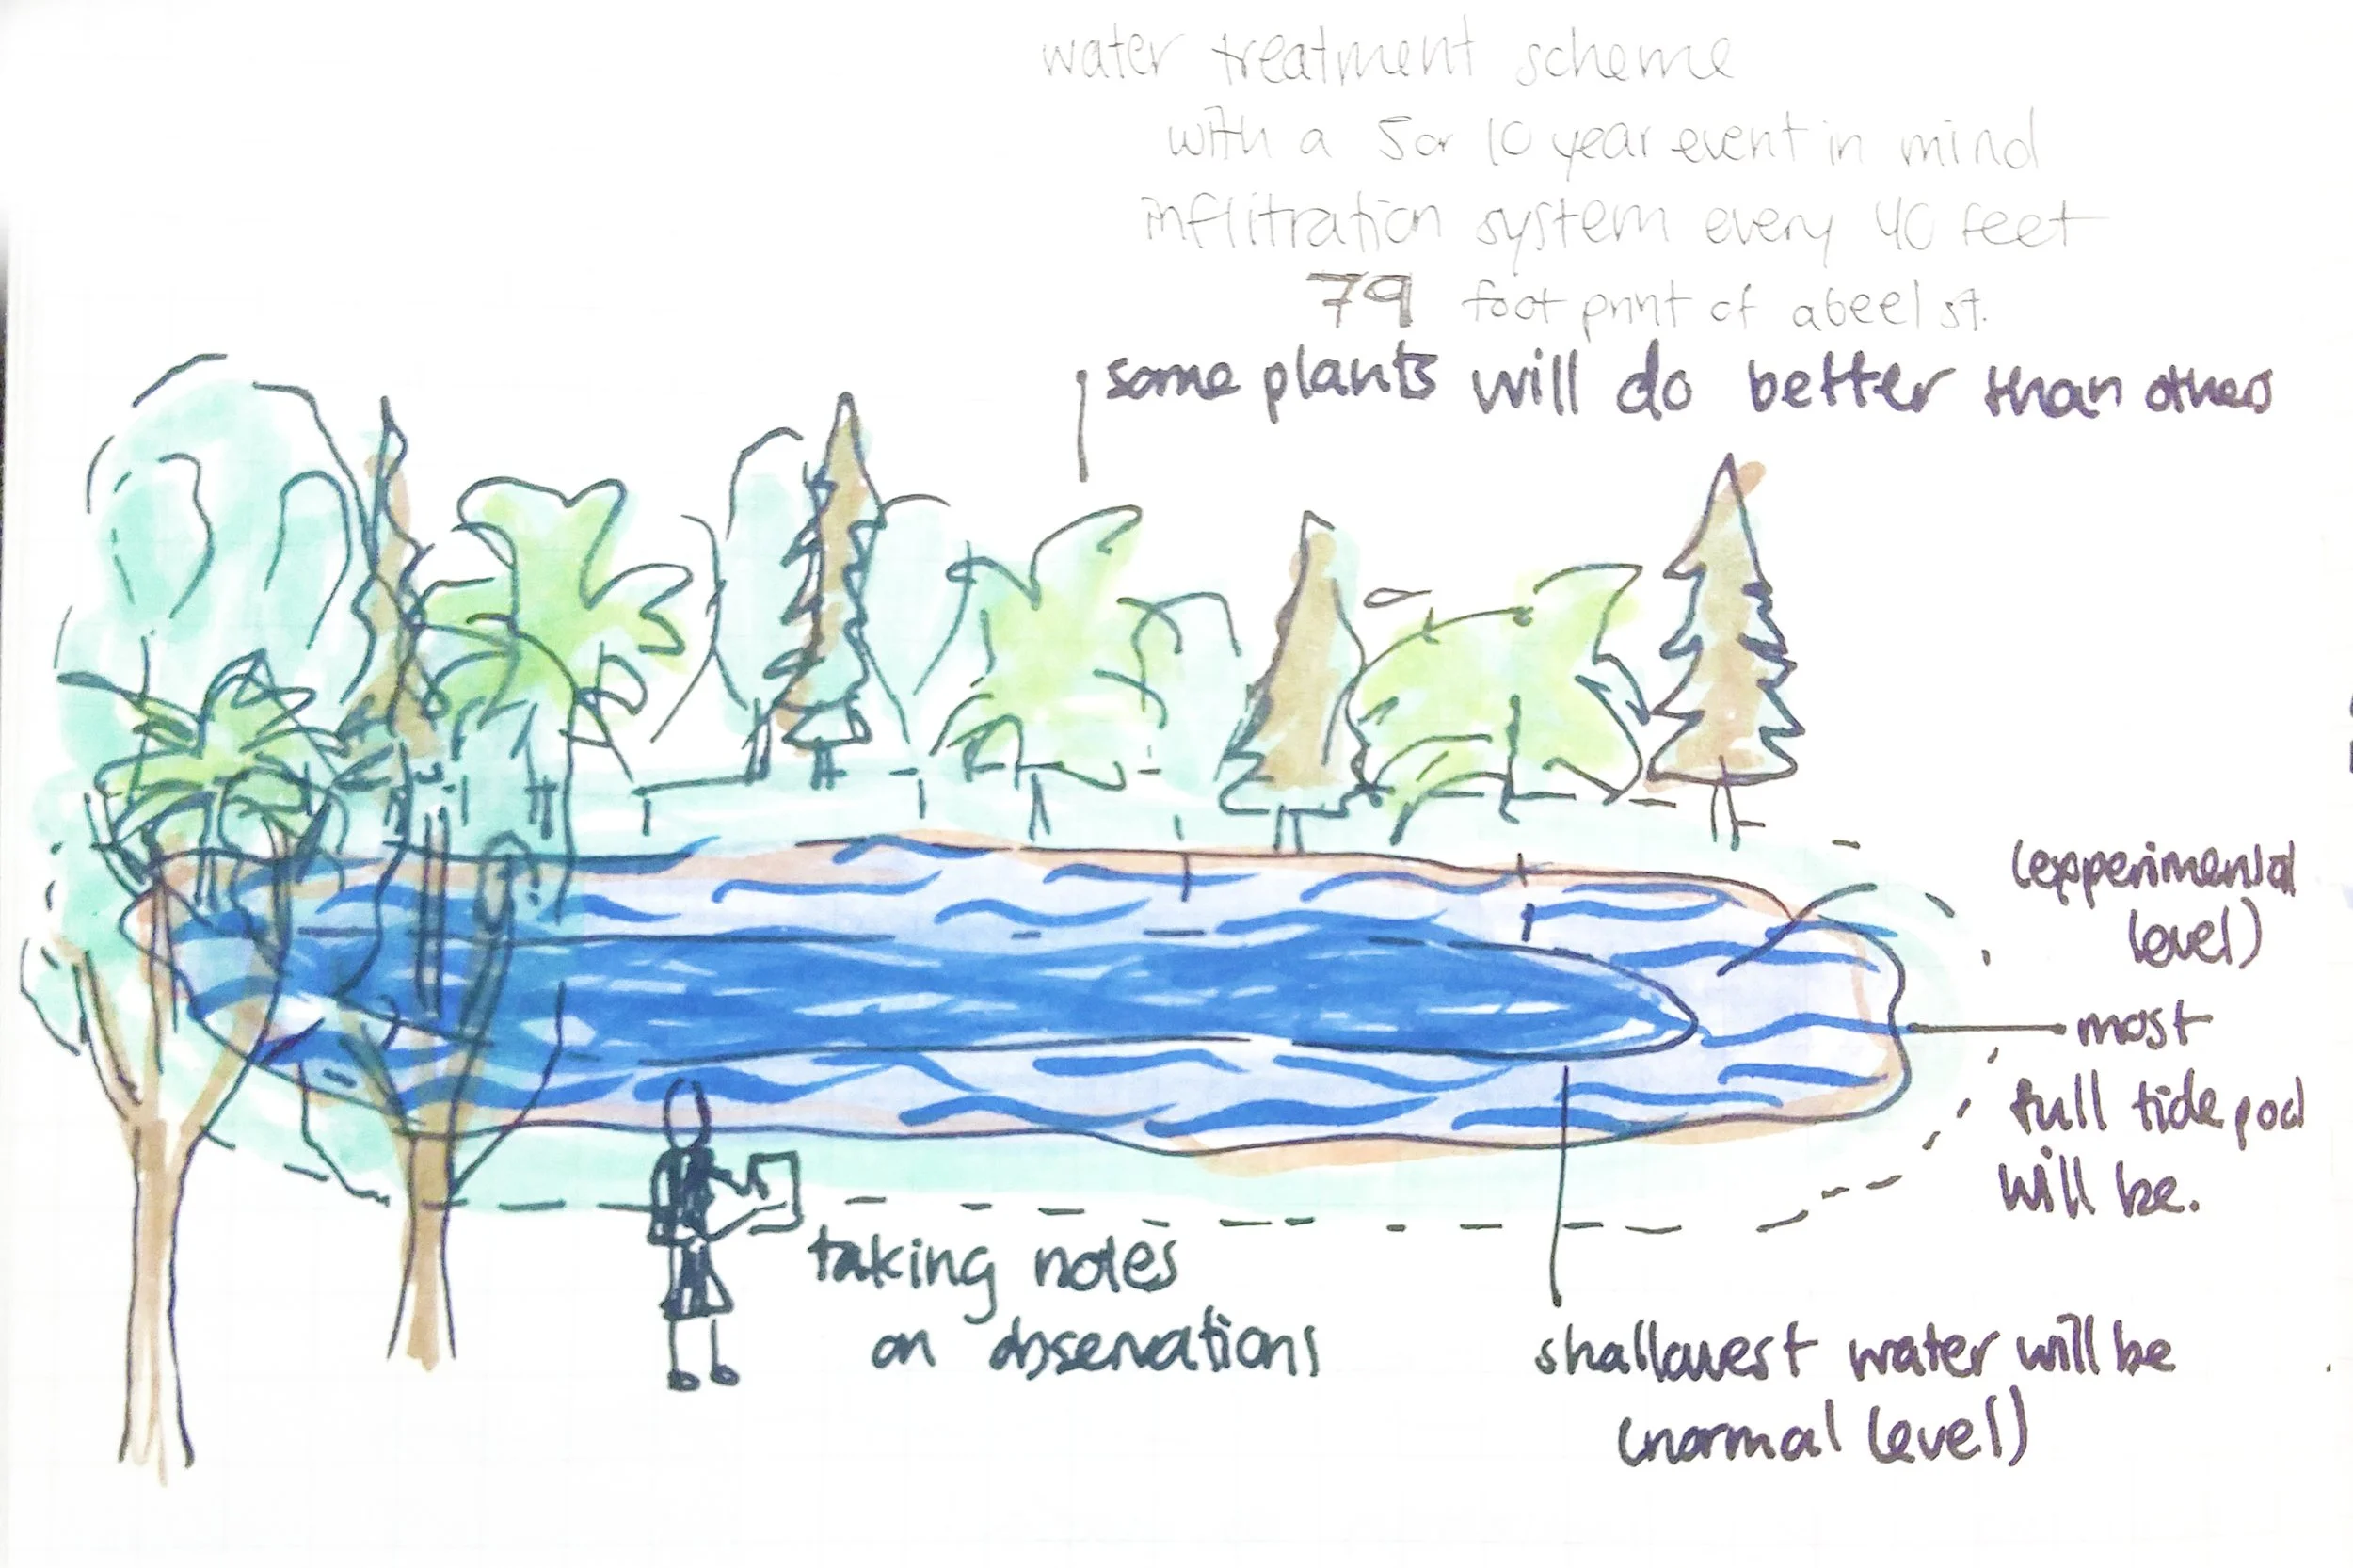 water treatment scheme
with a 5 or 10 year event in mind
inflitration system every 40 feet
79 foot print of abeel st.
some plants will do better than others
(experimental
level)
most
full tide pool
will be.
taking notes
on observations
shallowest water will be
(normal level)